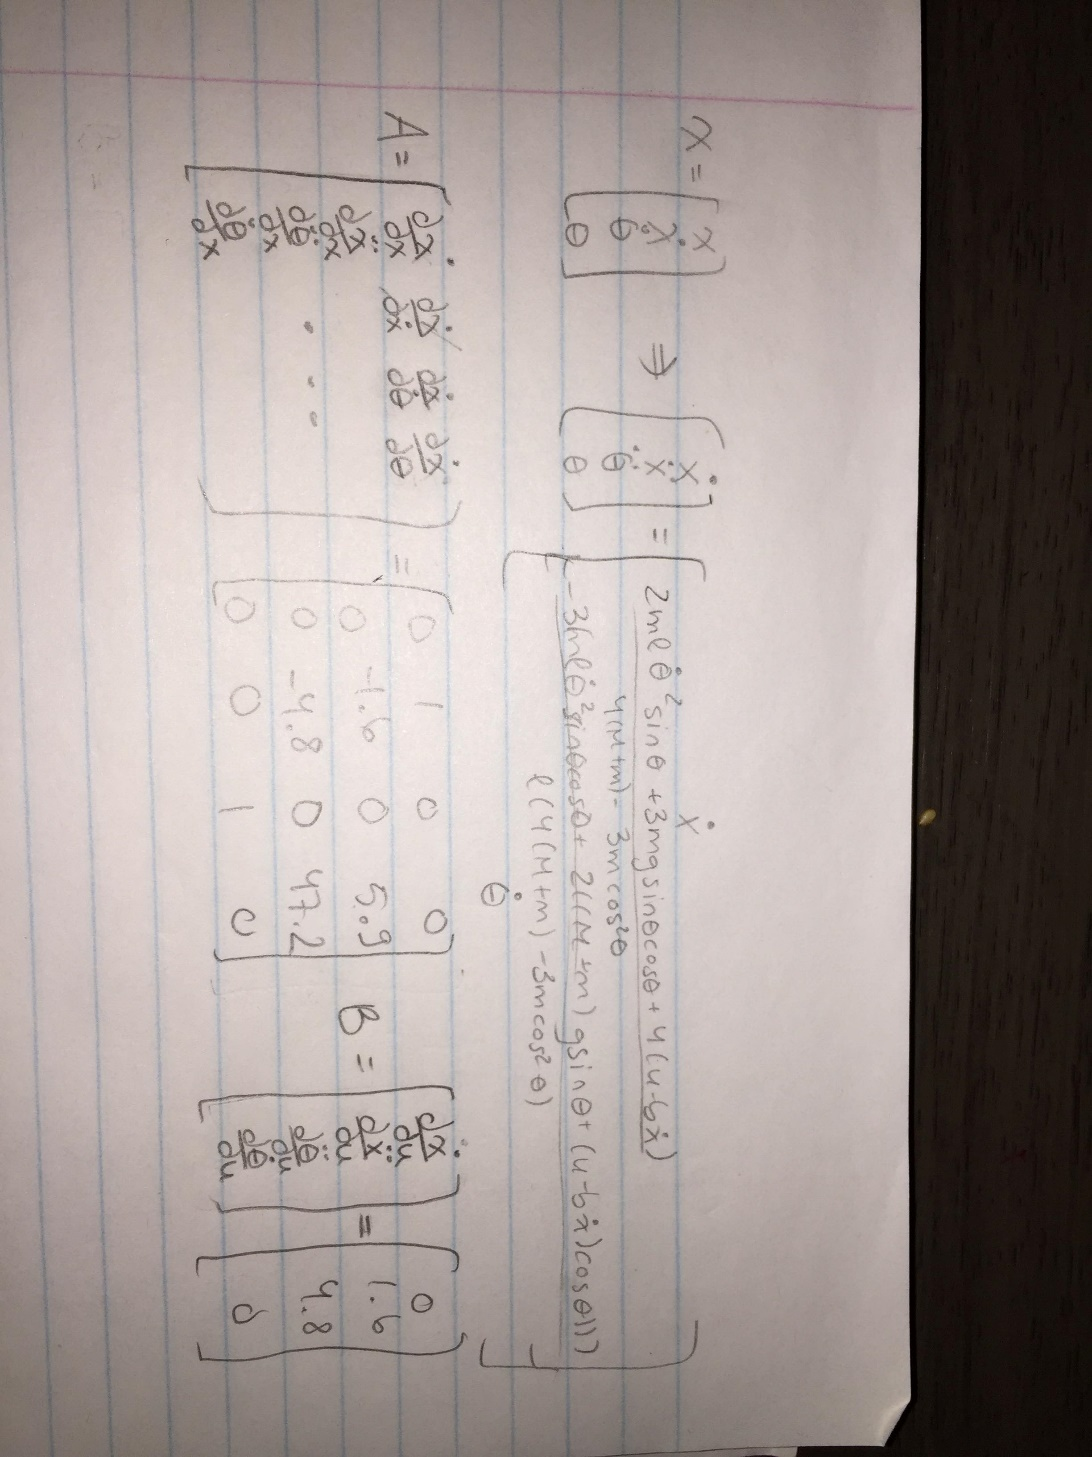 x = [ x ẋ θ̇ θ ] ⇒ [ ẋ ẍ θ̈ θ̇ ] = [ ẋ
2mlθ̇² sinθ + 3mgsinθcosθ + 4(u-bẋ)
4(M+m) - 3mcos²θ
-3(mlθ̇²sinθcosθ + 2((M+m)gsinθ + (u-bẋ)cosθ)))
l(4(M+m) - 3mcos²θ)
θ̇ ]
A = [ dẋ/dx dẋ/dẋ dẋ/dθ̇ dẋ/dθ
dẍ/dx
dθ̈/dx . . .
dθ̇/dx ]
= [ 0 1 0 0
0 -1.6 0 5.9
0 -4.8 0 47.2
0 0 1 0 ]
B = [ dẋ/du
dẍ/du
dθ̈/du
dθ̇/du ]
= [ 0
1.6
4.8
0 ]